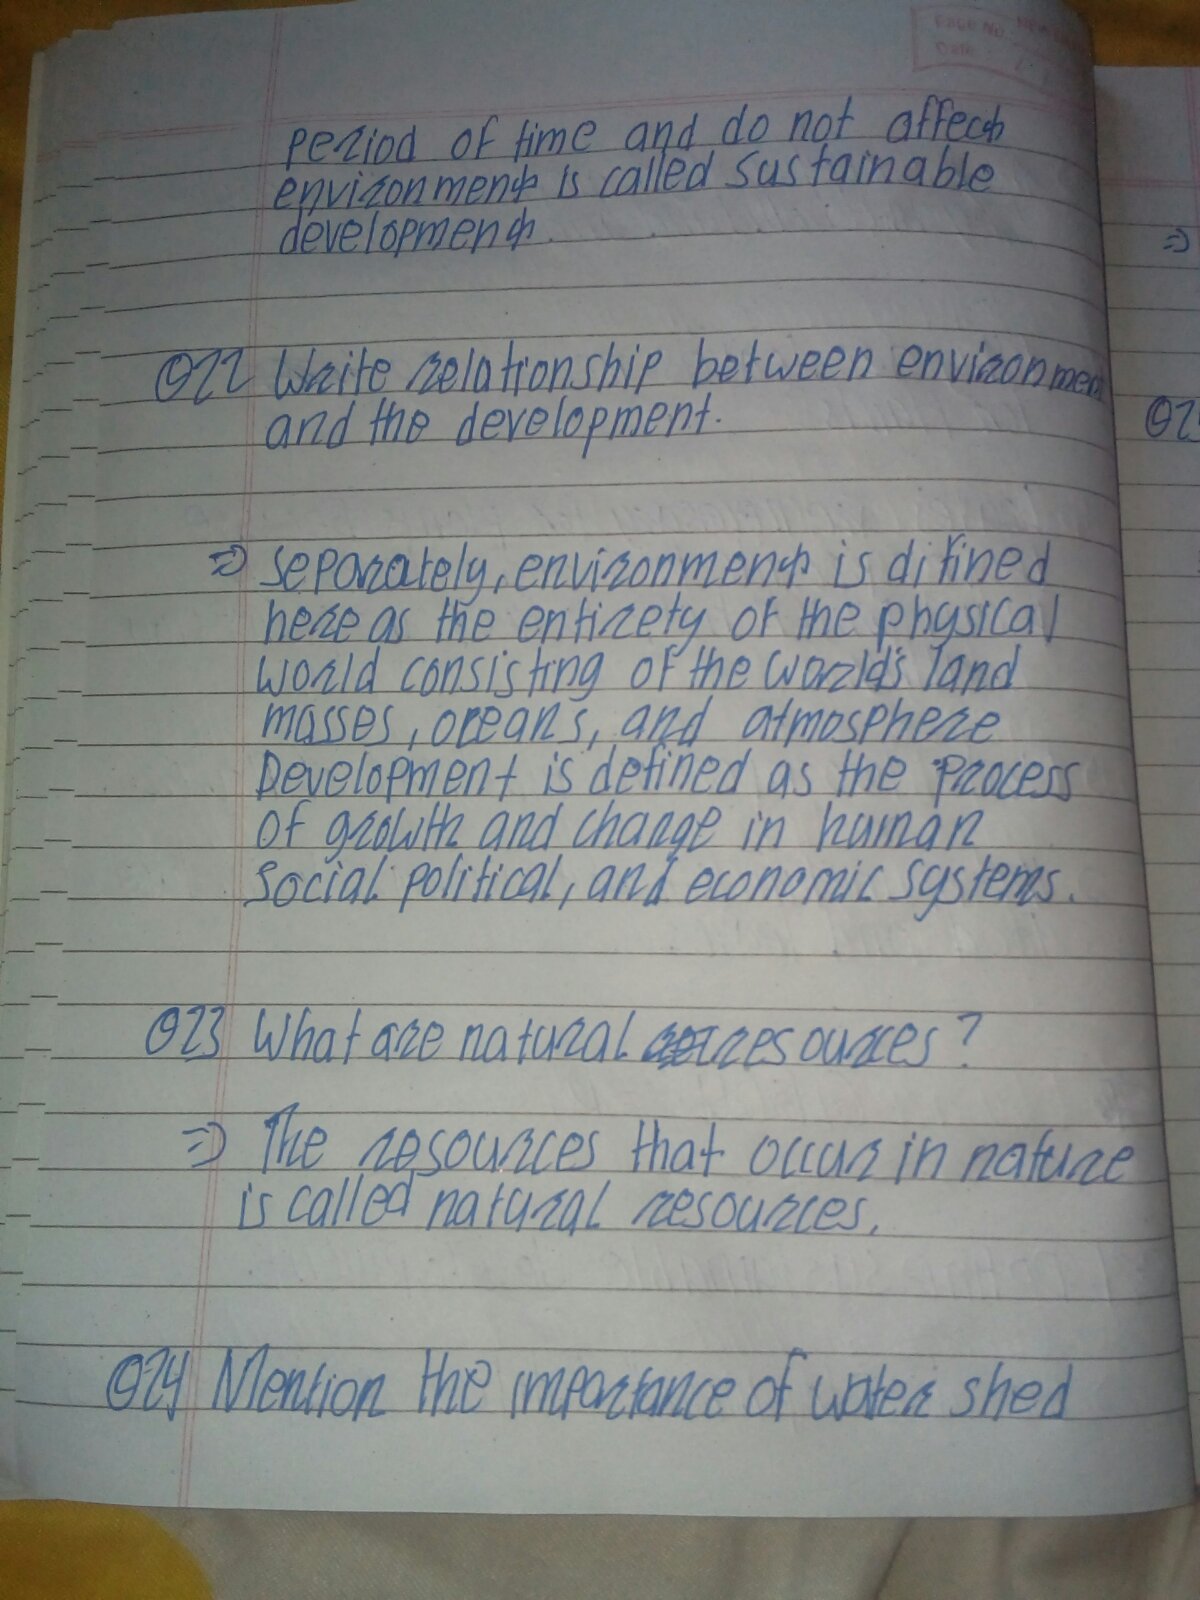 Page No.
Date
period of time and do not affect
environment is called sustainable
development.
Q22 Write relationship between environment
and the development.
=> Separately, environment is difined
here as the entirety of the physical
world consisting of the world's land
masses, oceans, and atmosphere
Development is defined as the process
of growth and change in human
social political, and economic systems.
Q23 What are natural resources?
=> The resources that occur in nature
is called natural resources.
Q24 Mention the importance of water shed
=>